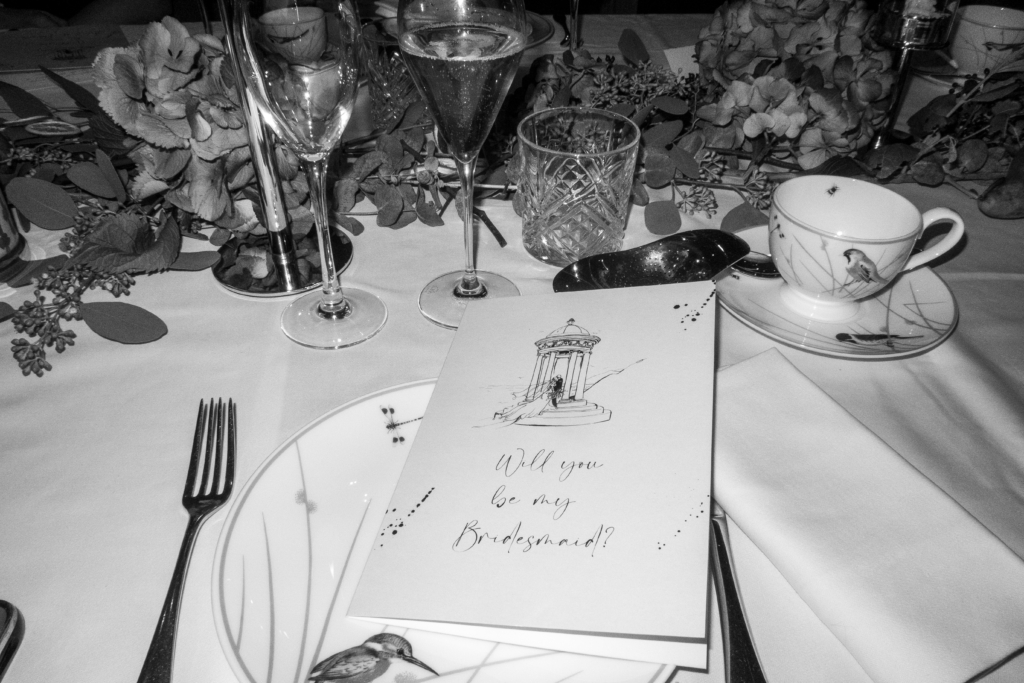 Will you
be my
Bridesmaid?